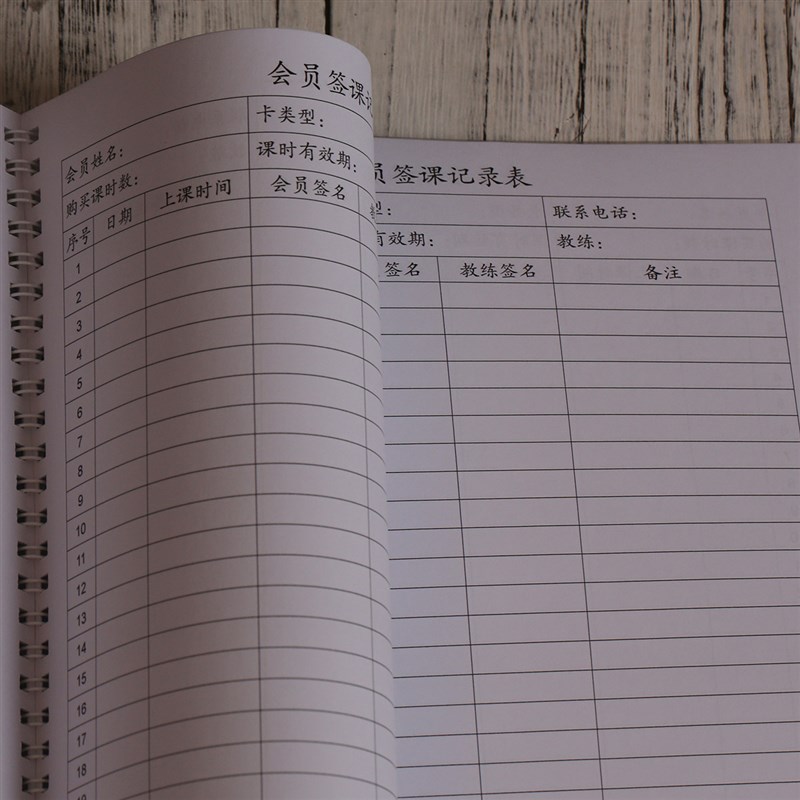 会员签课记
会员姓名： 卡类型：
购买课时数： 课时有效期：
序号 日期 上课时间 会员签名
1
2
3
4
5
6
7
8
9
10
11
12
13
14
15
16
17
18
员签课记录表
型： 联系电话：
有效期： 教练：
签名 教练签名 备注